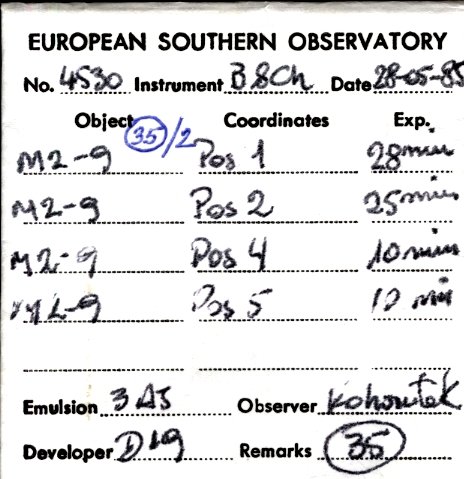 EUROPEAN SOUTHERN OBSERVATORY
No. 4530 Instrument B&Ch Date 28-05-85
Object 35/2 Coordinates Exp.
M2-9 Pos 1 28 min
M2-9 Pos 2 25 min
M2-9 Pos 4 10 min
M2-9 Pos 5 10 min
Emulsion Observer Kohoutek
Developer D19 Remarks 35